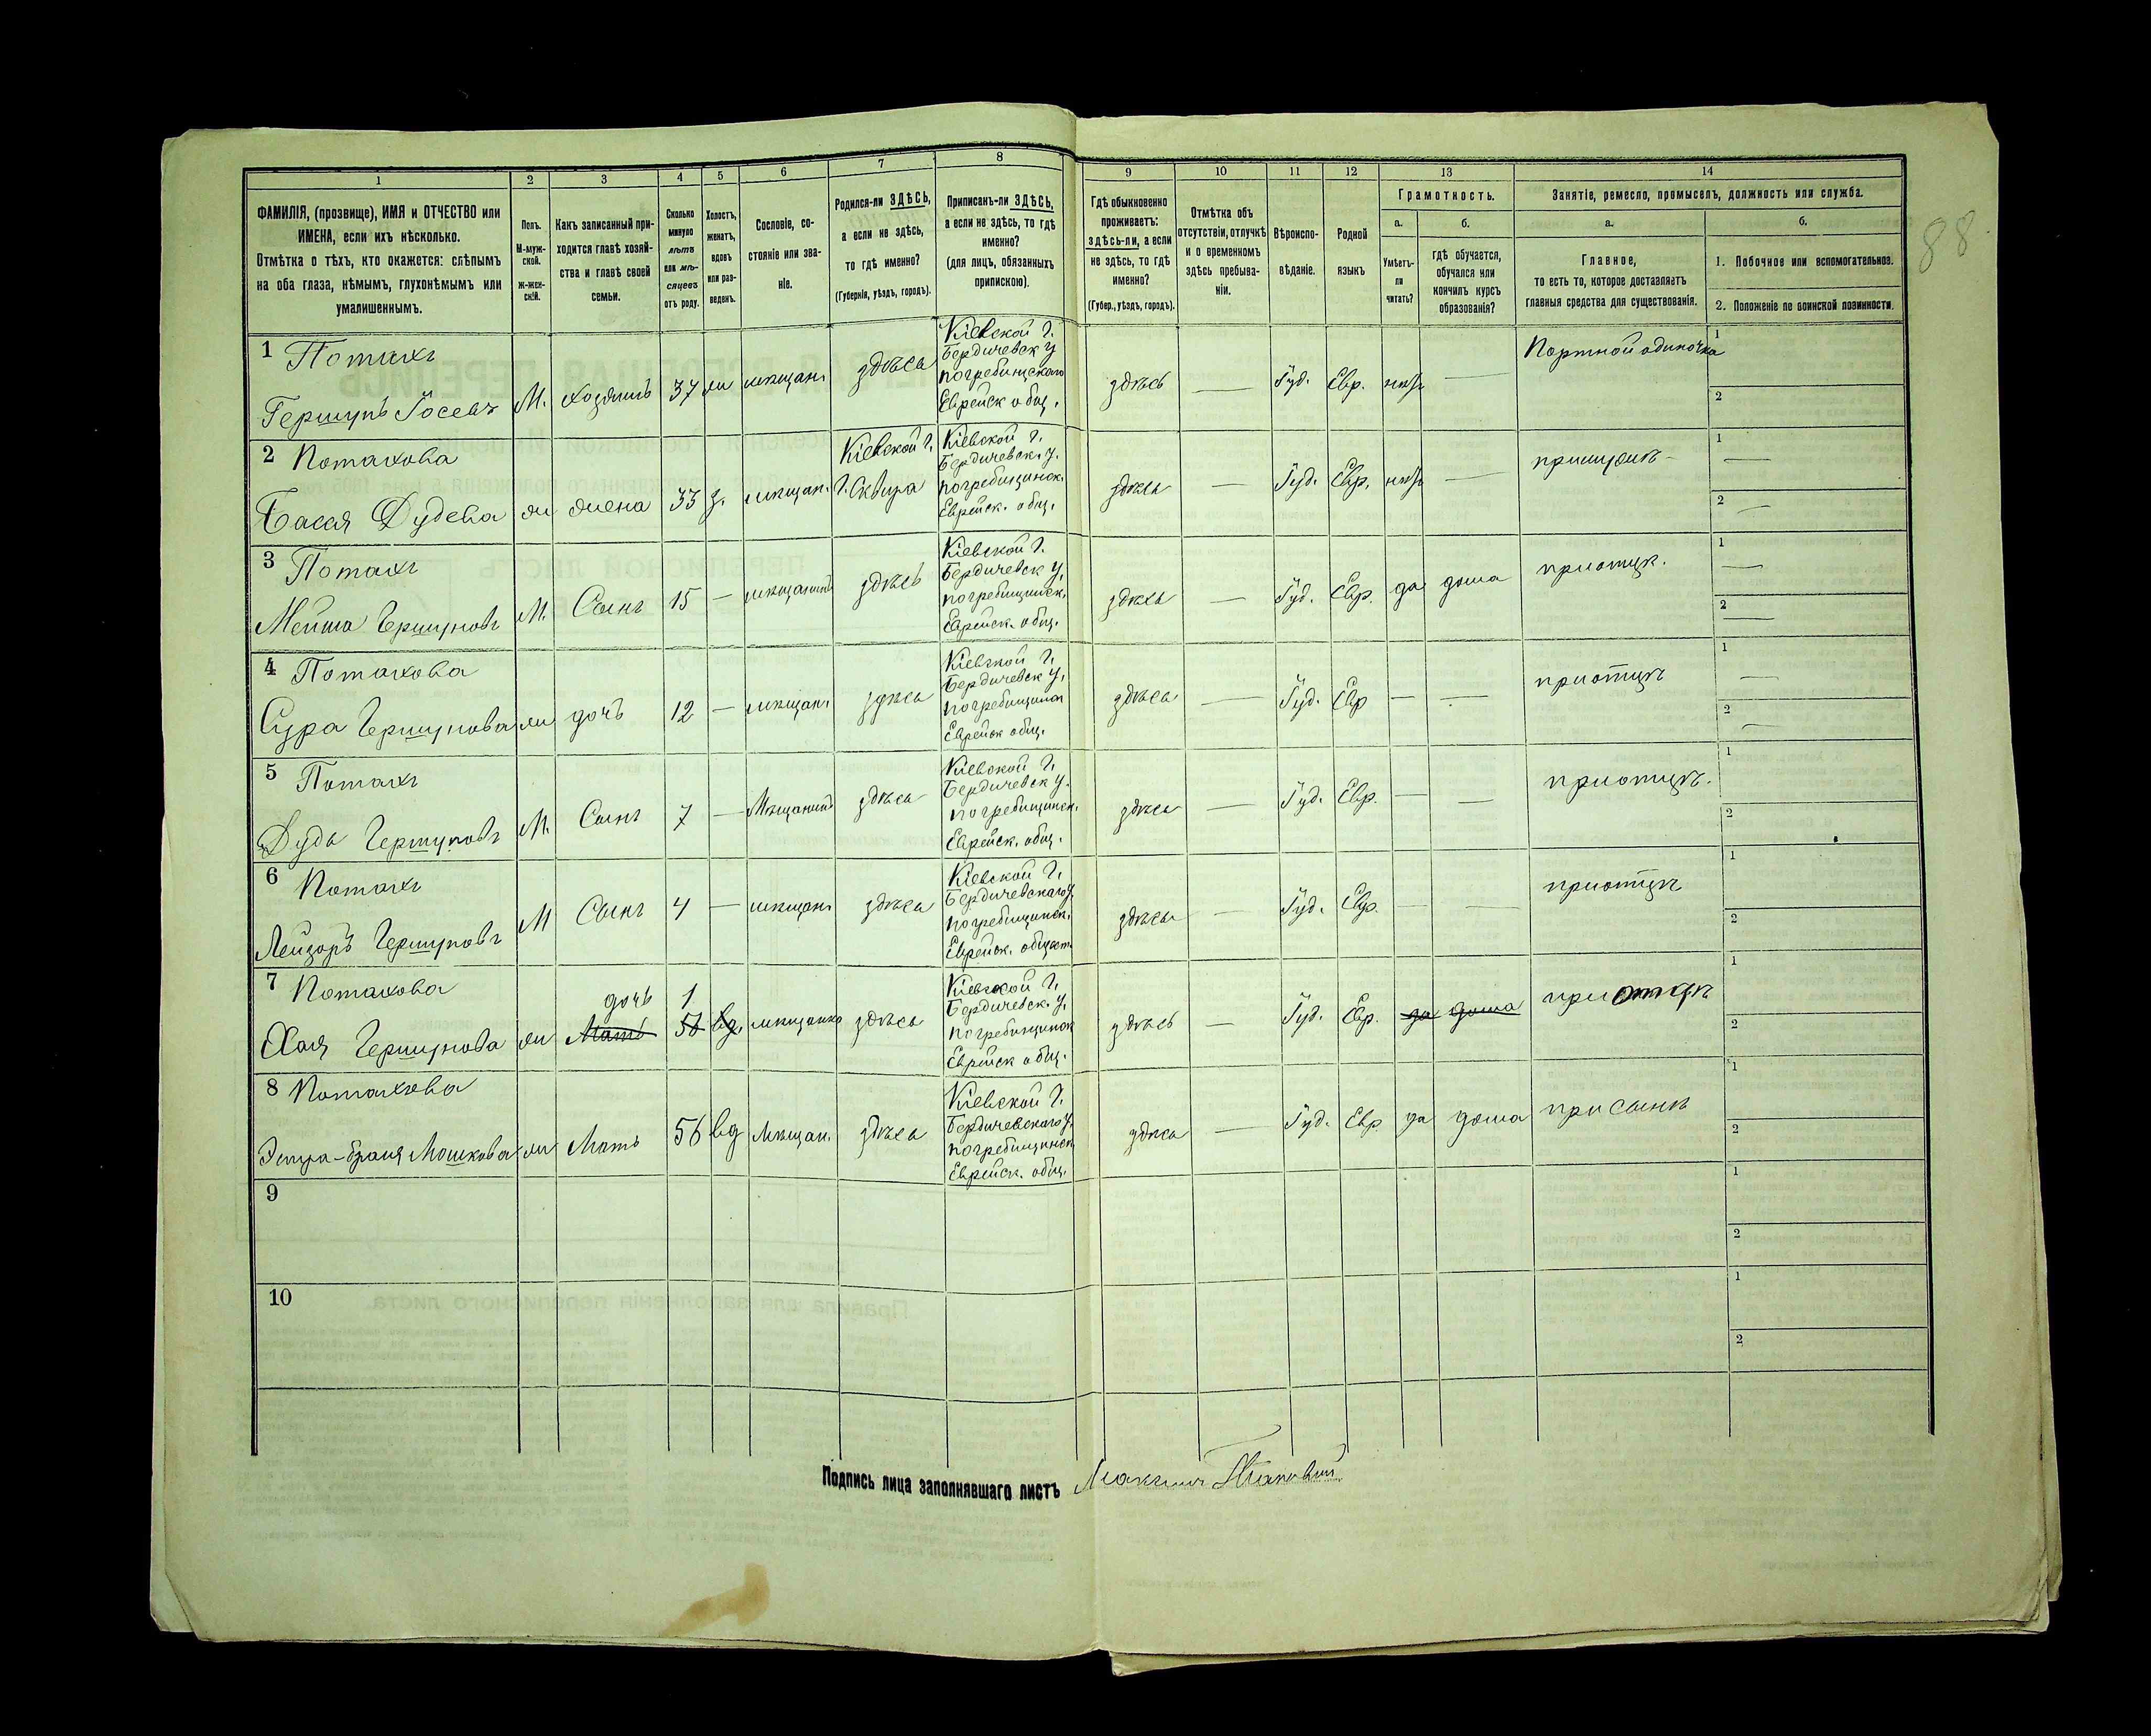 88
1 2 3 4 5 6 7 8 9 10 11 12 13 14
ФАМИЛІЯ, (прозвище), ИМЯ и ОТЧЕСТВО или
ИМЕНА, если ихъ нѣсколько.
Отмѣтка о тѣхъ, кто окажется: слѣпымъ
на оба глаза, нѣмымъ, глухонѣмымъ или
умалишеннымъ.
Полъ.
М-муж-
ской.
ж-жен-
скій.
Какъ записанный при-
ходится главѣ хозяй-
ства и главѣ своей
семьи.
Сколько
минуло
лѣтъ
или мѣ-
сяцевъ
отъ роду.
Холостъ,
женатъ,
вдовъ
или раз-
веденъ.
Сословіе, со-
стояніе или зва-
ніе.
Родился-ли ЗДѢСЬ,
а если не здѣсь,
то гдѣ именно?
(Губернія, уѣздъ, городъ).
Приписанъ-ли ЗДѢСЬ,
а если не здѣсь, то гдѣ
именно?
(для лицъ, обязанныхъ
припискою).
Гдѣ обыкновенно
проживаетъ:
здѣсь-ли, а если
не здѣсь, то гдѣ
именно?
(Губер., уѣздъ, городъ).
Отмѣтка объ
отсутствіи, отлучкѣ
и о временномъ
здѣсь пребыва-
ніи.
Вѣроиспо-
вѣданіе.
Родной
языкъ
Грамотность.
а.
Умѣетъ-
ли
читать?
б.
гдѣ обучается,
обучался или
кончилъ курсъ
образованія?
Занятіе, ремесло, промыселъ, должность или служба.
а.
Главное,
то есть то, которое доставляетъ
главныя средства для существованія.
б.
1. Побочное или вспомогательное.
2. Положеніе по воинской повинности.
1 Потахъ
Гершунъ Іосевъ М. хозяинъ 37 ж мѣщан. здѣсь
Кіевской Г.
Бердичевск у
погребищскаго
Еврейск общ.
здѣсь — Іуд. Евр. нѣтъ —
Портной одиночка
1
2
2 Потахова
Бася Дудева ж жена 33 з. мѣщан.
Кіевской г.
г. Сквира
Кіевской г.
Бердичевск. у.
погребищинск.
Еврейск. общ.
здѣсь — Іуд. Евр. нѣтъ —
при мужѣ —
1 —
2 —
3 Потахъ
Мейша Гершуновъ М. Сынъ 15 — мѣщанинъ здѣсь
Кіевской г.
Бердичевск у,
погребищинск.
Еврейск. общ.
здѣсь — Іуд. Евр. да дома
при отцѣ.
1 —
2 —
4 Потахова
Сура Гершунова ж дочь 12 — мѣщан. здѣсь
Кіевской г.
Бердичевск у,
погребищинск
Еврейск общ.
здѣсь — Іуд. Евр — —
при отцѣ
1 —
2 —
5 Потахъ
Дудь Гершуновъ М. Сынъ 7 — Мѣщанинъ здѣсь
Кіевской г.
Бердичевск у.
погребищинск.
Еврейск. общ.
здѣсь — Іуд. Евр. — —
при отцѣ.
1
2
6 Потахъ
Лейзоръ Гершуновъ М Сынъ 4 — мѣщан. здѣсь
Кіевской г.
Бердичевскаго у.
погребищинск.
Еврейск. общест.
здѣсь — Іуд. Евр. — —
при отцѣ
1
2
7 Потахова
дочь 1
Хая Гершунова ж Мать 56 вд. мѣщанка здѣсь
Кіевской г.
Бердичевск. у.
погребищинск
Еврейск общ.
здѣсь — Іуд. Евр. да дома
при отцѣ
1
2
8 Потахова
Эстра-браня Мошкова ж Мать 56 вд Мѣщан. здѣсь
Кіевской г.
Бердичевскаго у.
погребищинск
Еврейск. общ.
здѣсь — Іуд. Евр. да дома
при сынѣ
1
2
9
1
2
10
1
2
Подпись лица заполнявшаго листъ